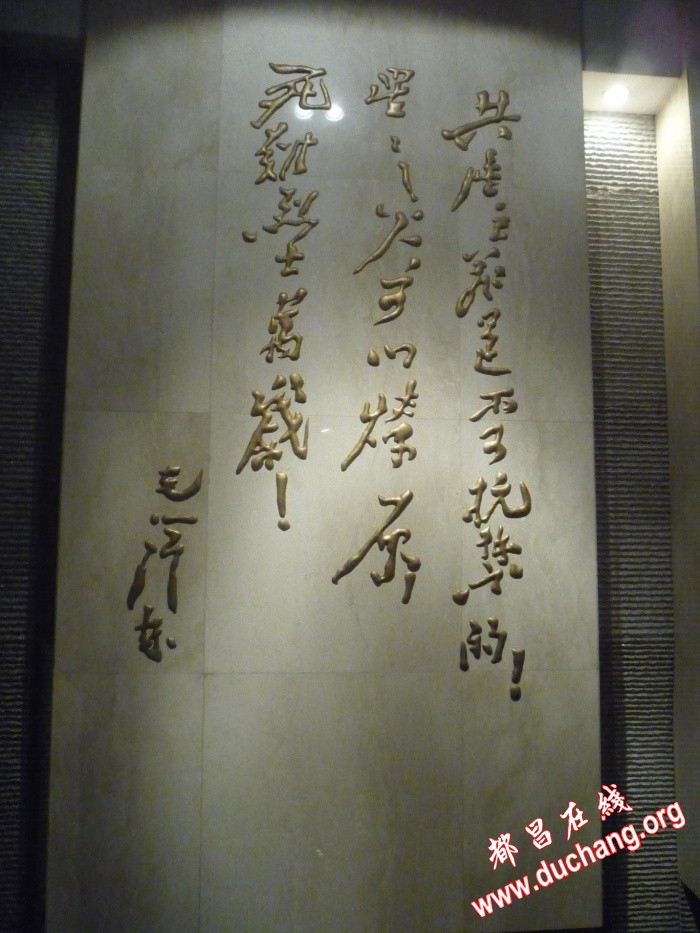 共產主義是不可抗禦的！
星星之火可以燎原，
死難烈士萬歲！
毛泽东
都昌在线
www.duchang.org